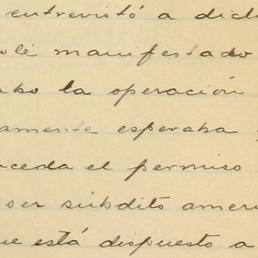 entrevistó a dich
olé manifestado
abo la operación
amente esperaba
ceda el permiso
ser súbdito ameri
ue está dispuesto a